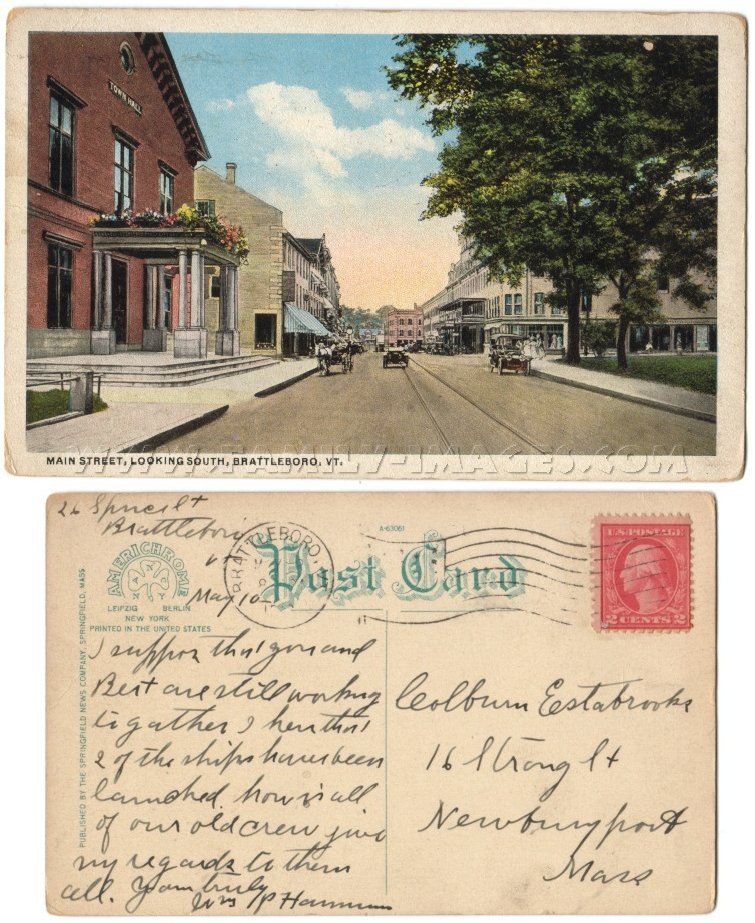 TOWN HALL
MAIN STREET, LOOKING SOUTH, BRATTLEBORO, VT.
WWW.FAMILY-IMAGES.COM
26 Spruce St
Brattleboro
Vt
May 10
A-63061
BRATTLEBORO,
Post Card
AMERICHROME
LEIPZIG BERLIN
NEW YORK
PRINTED IN THE UNITED STATES
PUBLISHED BY THE SPRINGFIELD NEWS COMPANY, SPRINGFIELD, MASS
U.S. POSTAGE
2 CENTS 2
I suppos that you and
Bert are still working
to gather I hear that
2 of the ships have been
launched. how is all
of our old crew give
my regards to them
all. Yours truly
Wm P
Colburn Estabrooke
16 Strong St
Newburyport
Mass